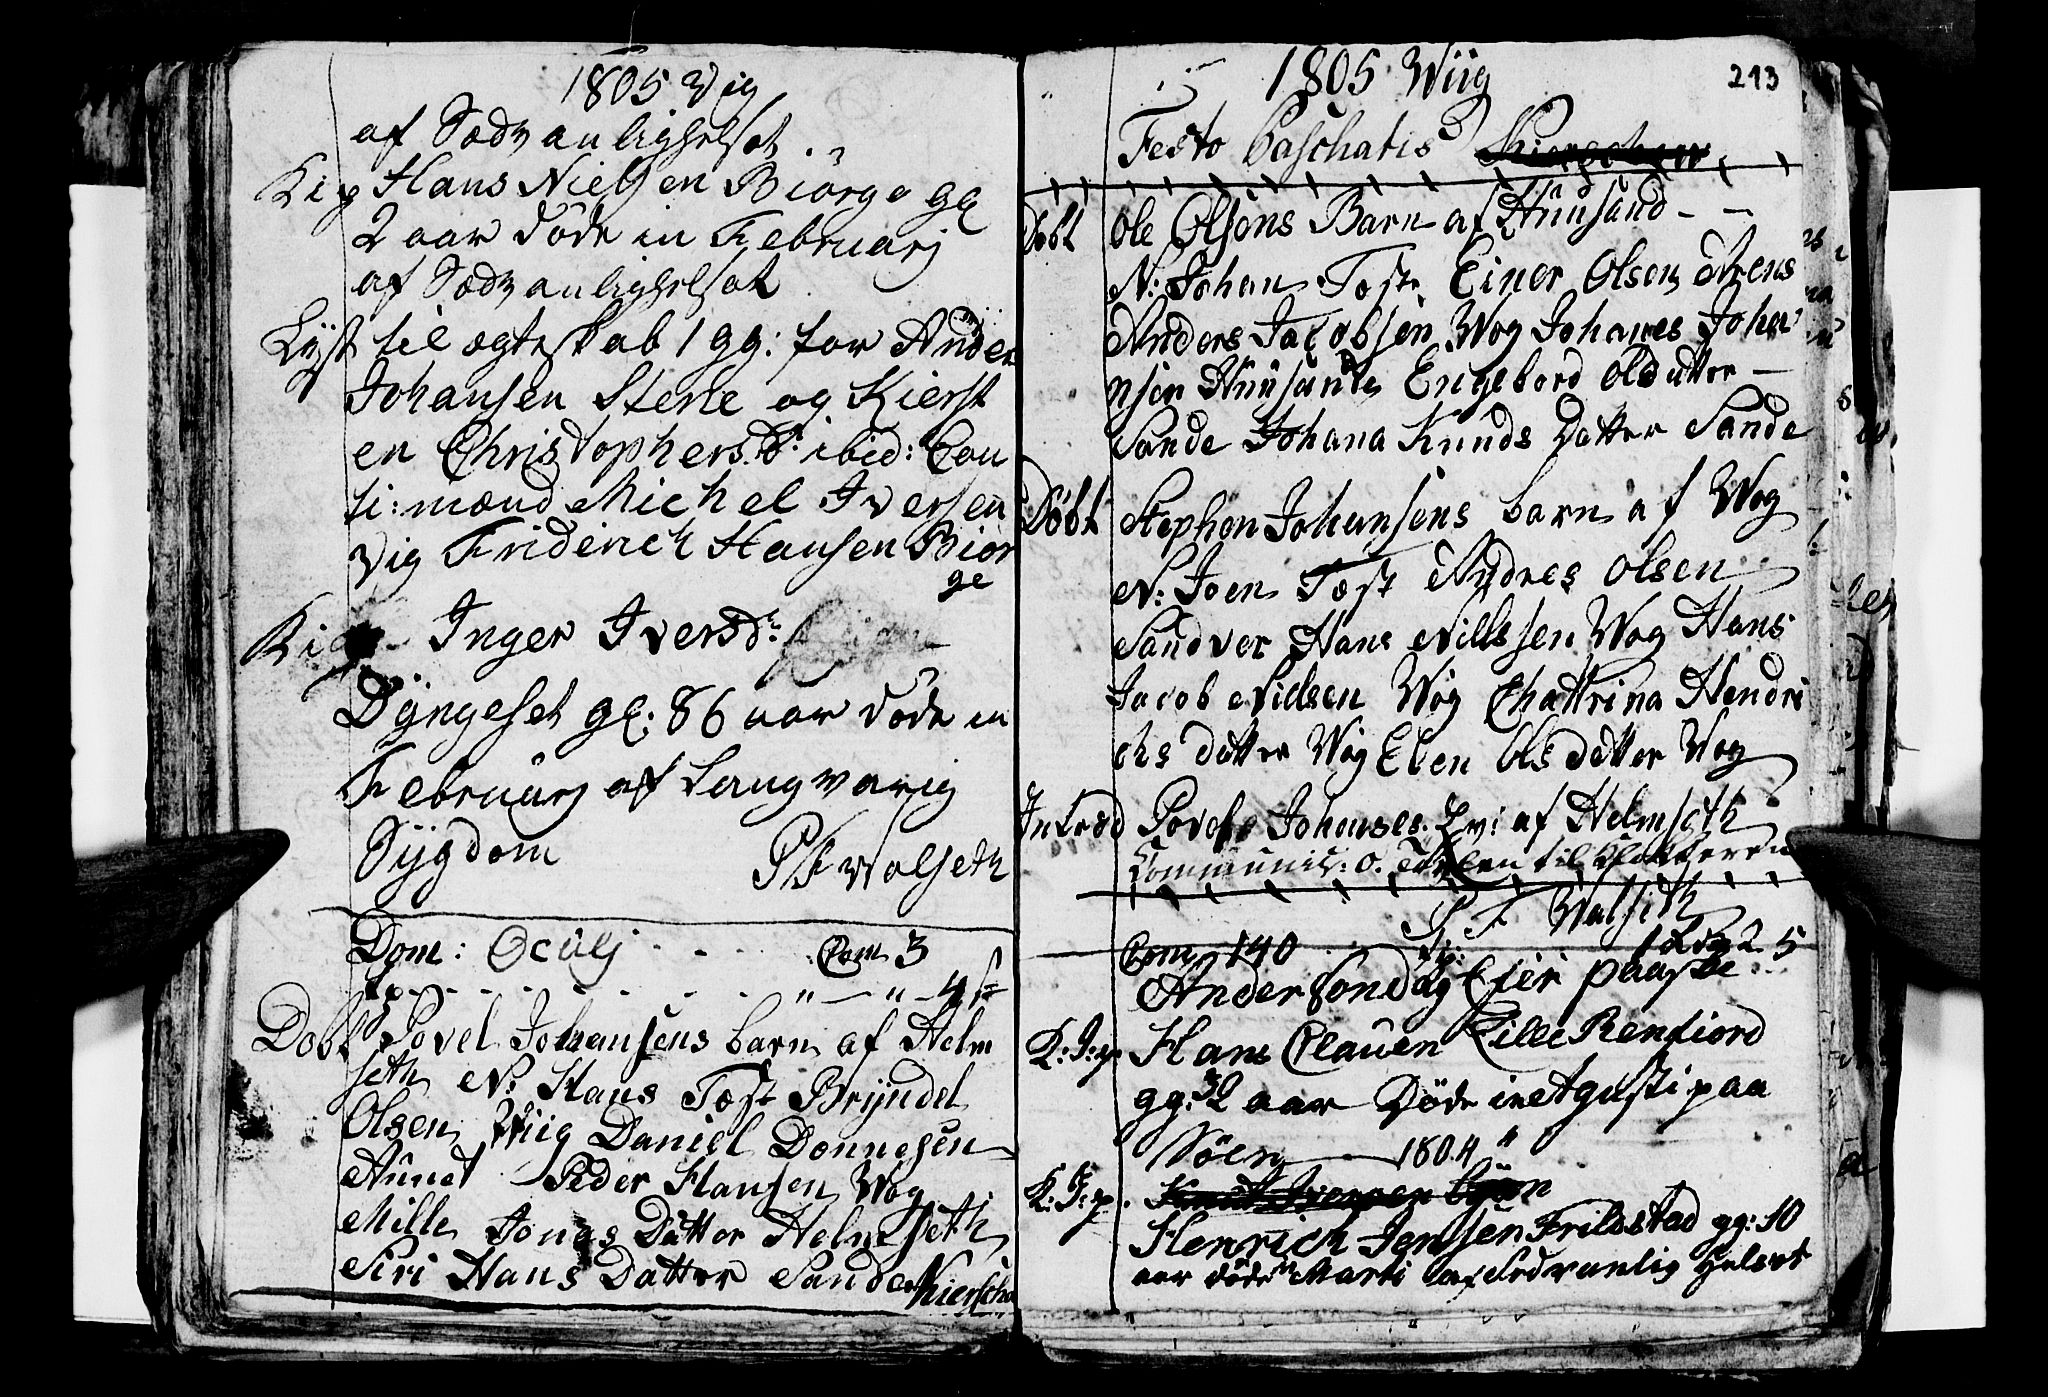 1805 Vig
af Sædvanlighelsot
Kip Hans Nielsen Biörge gl
2 aar döde in Februarj
af Sædvanlighelsot
Lyst til ægteskab 1 gg: for Anders
Johansen Sterle og Kierst
en Christophersd: ibid: Cau
ti: mænd Michel Iversen
Vig Friderich Hansen Biör
ge
Inger Iversd:
Dÿngeset gl: 86 aar döde in
Februarj af Langvarig
Sÿgdom P F Walseth
Dom: Oculj Com 3
Döbt Povel Johansens barn af Helm
seth N: Hans Test Brÿndel
Olsen Wiig Daniel Donnesen
Aunet Peder Hansen Wog
Mille Jonas Datter Helmseth
Siri Hans Datter Sande
1805 Wiig 213
Festo Paschatis
Döbt Ole Olsöns Barn af Hünsand
N: Johan Test Einer Olsen Arens
Anders Jacobsen Wog Johanes Johan
nsen Hünsande Engebord Olsdatter
Sande Johana Knuds Datter Sande
Döbt Stephen Johansens barn af Wog
N: Joen Test Andres Olsen
Sandver Hans Nillssen Wog Hans
Jacob Nillsen Wog Chattrina Hendri
chs datter Wog Elen Olsdatter Wog
Introd Povel Johanses af Helmseth
Communic: 0. til Klokkeren
P F Walseth
Com 140
Ander Sondag Efter paaske
K: J: p Hans Clausen Lille Renfiord
gg: 32 aar Döde in Agusti paa
Söen 1804
K: J: p.
Henrich Jenssen Frildstad gg: 10
aar döde in Marti af Sedvanlig Helsot